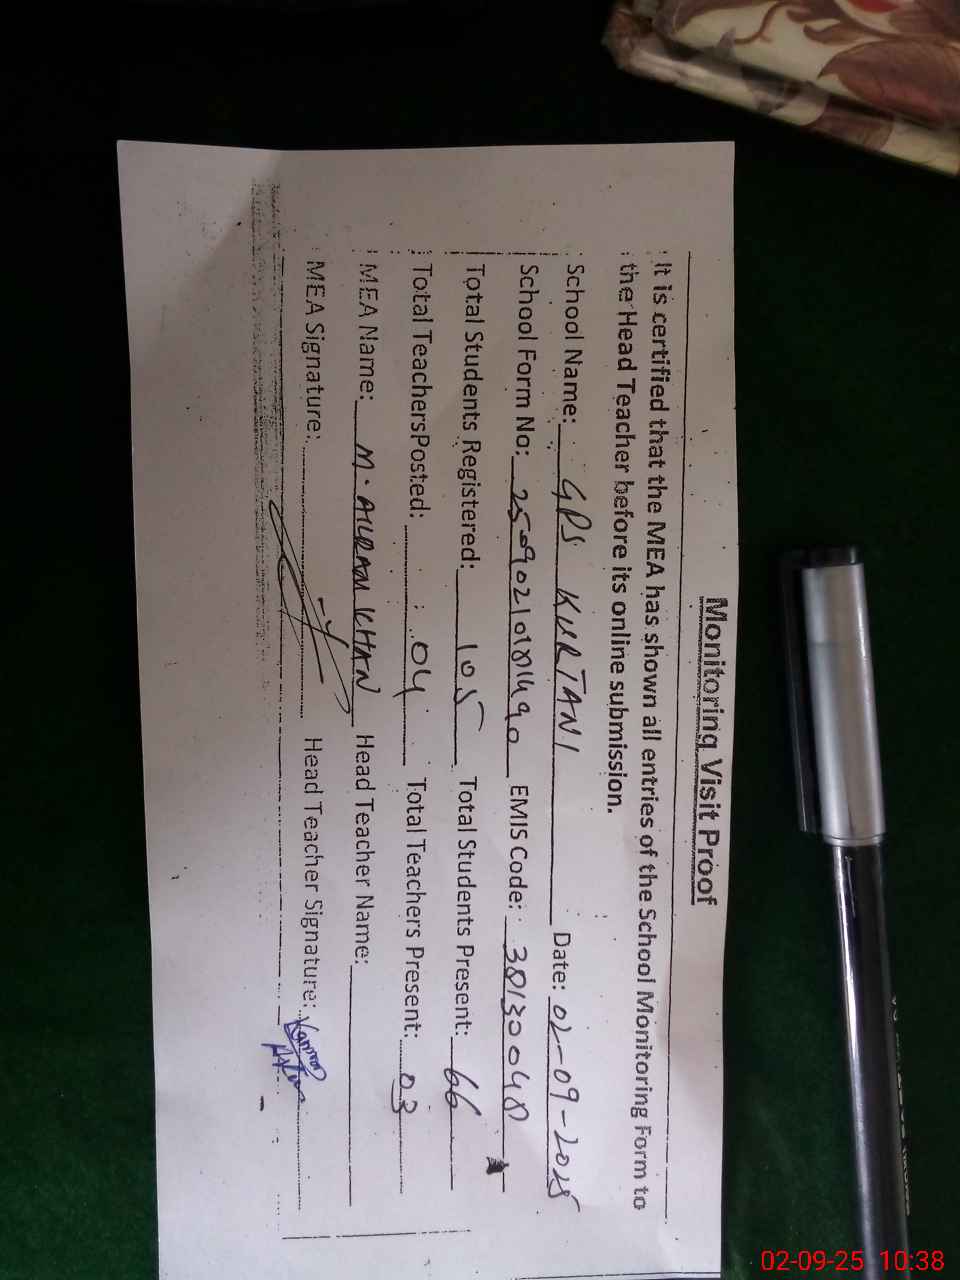 Monitoring Visit Proof
It is certified that the MEA has shown all entries of the School Monitoring Form to
the Head Teacher before its online submission.
School Name: GPS KURTANI Date: 02-09-2025
School Form No: EMIS Code: 38130048
Total Students Registered: 105 Total Students Present: 66
Total TeachersPosted: 04 Total Teachers Present: 03
MEA Name: M. AKRAM KHAN Head Teacher Name:
MEA Signature: Head Teacher Signature:
02-09-25 10:38